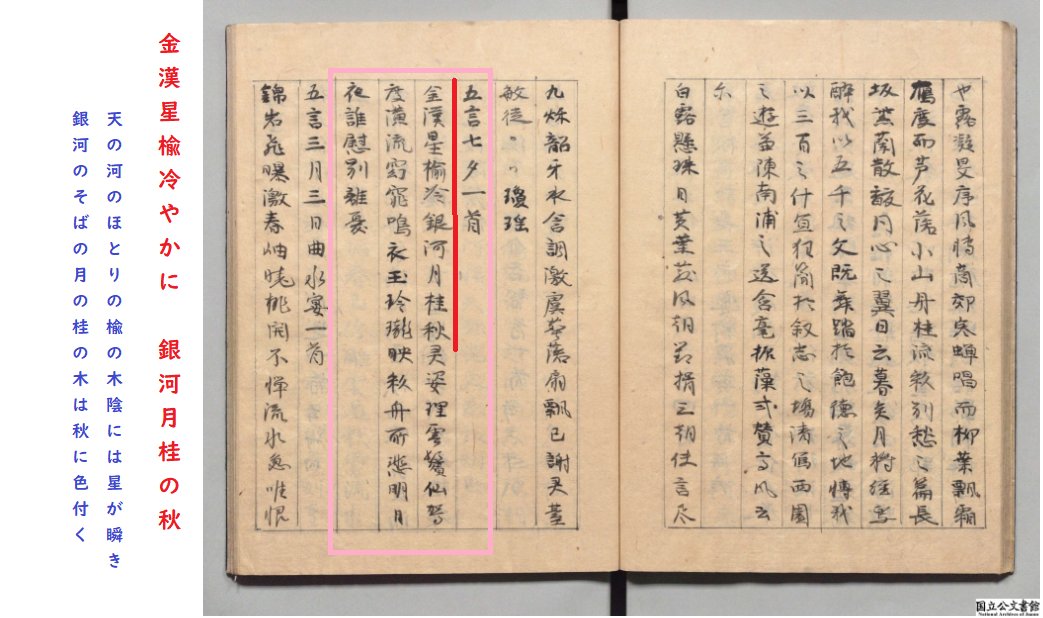 也露凝旻序風轉商郊寒蝉唱而柳葉飄霜
鴈度而芦花落小山丹桂流彩別愁之篇長
坂紫蘭散馥同心之翼日云暮矣月将継焉
醉我以五千之文既舞踏於飽徳之地博我
以三百之什且狂簡於叙志之場清写西園
之遊兼陳南浦之送含毫振藻式賛高風云
尓
白露懸珠日黄葉散風朝対揖三朝使言尽
九秋韶牙水含調激虞葵落扇飄已謝灵臺
瓊瑶
五言七夕一首
金漢星楡冷銀河月桂秋灵姿理雲鬢仙駕
度潢流窈窕鳴衣玉玲瓏映彩舟所悲明月
夜誰慰別離憂
五言三月三日曲水宴一首
錦岩飛曝激春岫曄桃開不憚流水急唯恨
金漢星楡冷やかに 銀河月桂の秋
天の河のほとりの楡の木陰には星が瞬き
銀河のそばの月の桂の木は秋に色付く
国立公文書館
National Archives of Japan